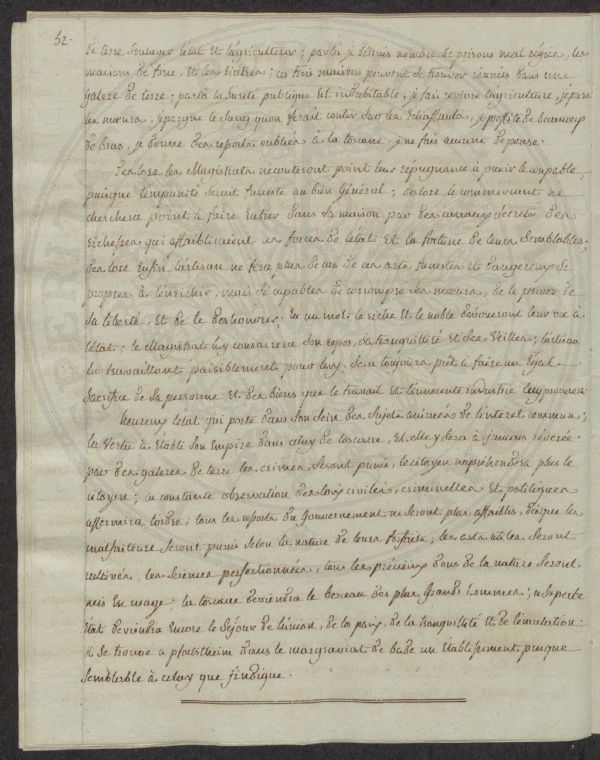 52.
de terre soulager l'etat et l'agriculteur; par la je détruis nombre de prisons mal régies, les
maisons de force, et les bicetres; ces trois maisons peuvent se trouver réunies dans une
galere de terre; par la la sureté publique est indubitable, je fais revivre l'agriculture, j'épure
les mœurs, j'épargne le sang qu'on ferait couler sur les Echaffauts, je profite de beaucoup
de bras, je donne des ressorts oubliés à la toscane, je ne fais aucune dépense.
Des lors les Magistrats n'ecouteront point leur répugnance à punir le coupable,
puisque l'impunité serait funeste au bien Général; des lors le commercant ne
cherchera point à faire entrer dans sa maison par des canaux secrets des
richesses qui affaibliraient les forces de l'état et la fortune de leurs Semblables;
des lors enfin l'artisan ne fera plus de cas de ces arts funestes et dangereux si
propres à l'enrichir, mais si capables de corrompre ses mœurs, de le priver de
sa liberté, et de le deshonorer; En un mot: le riche et le noble dévoueront leur vie à
l'état; le Magistrat luy consacrera son repos, sa tranquillité et ses Veilles; l'artisan
en travaillant paisiblement pour luy, sera toujours prêt à faire un Egal
Sacrifice de sa personne et des biens que le travail et l'innocente industrie luy procurera.
heureux l'etat qui porte dans son sein des sujets animés de l'intérêt commun;
la Vertu a établi son Empire dans celuy de toscane, et elle y sera à jamais révérée.
par des galeres de terre les crimes seront punis, le citoyen n'apréhendera plus le
citoyen; la constante observation des loix civiles, criminelles et politiques
affermira l'ordre; tous les ressorts du Gouvernement ne seront plus affaiblis, dès que les
malfaiteurs seront punis selon la nature de leurs forfaits; les arts utiles seront
cultivés, les Sciences perfectionnées, tous les précieux dons de la nature seront
mis en usage; la toscane deviendra le berceau des plus Grands hommes; ce superbe
état deviendra encore le séjour de l'union, de la paix, de la tranquillité et de l'émulation.
il se trouve a pfortzheim dans le margraviat de bade un établissement presque
semblable à celuy que j'indique.